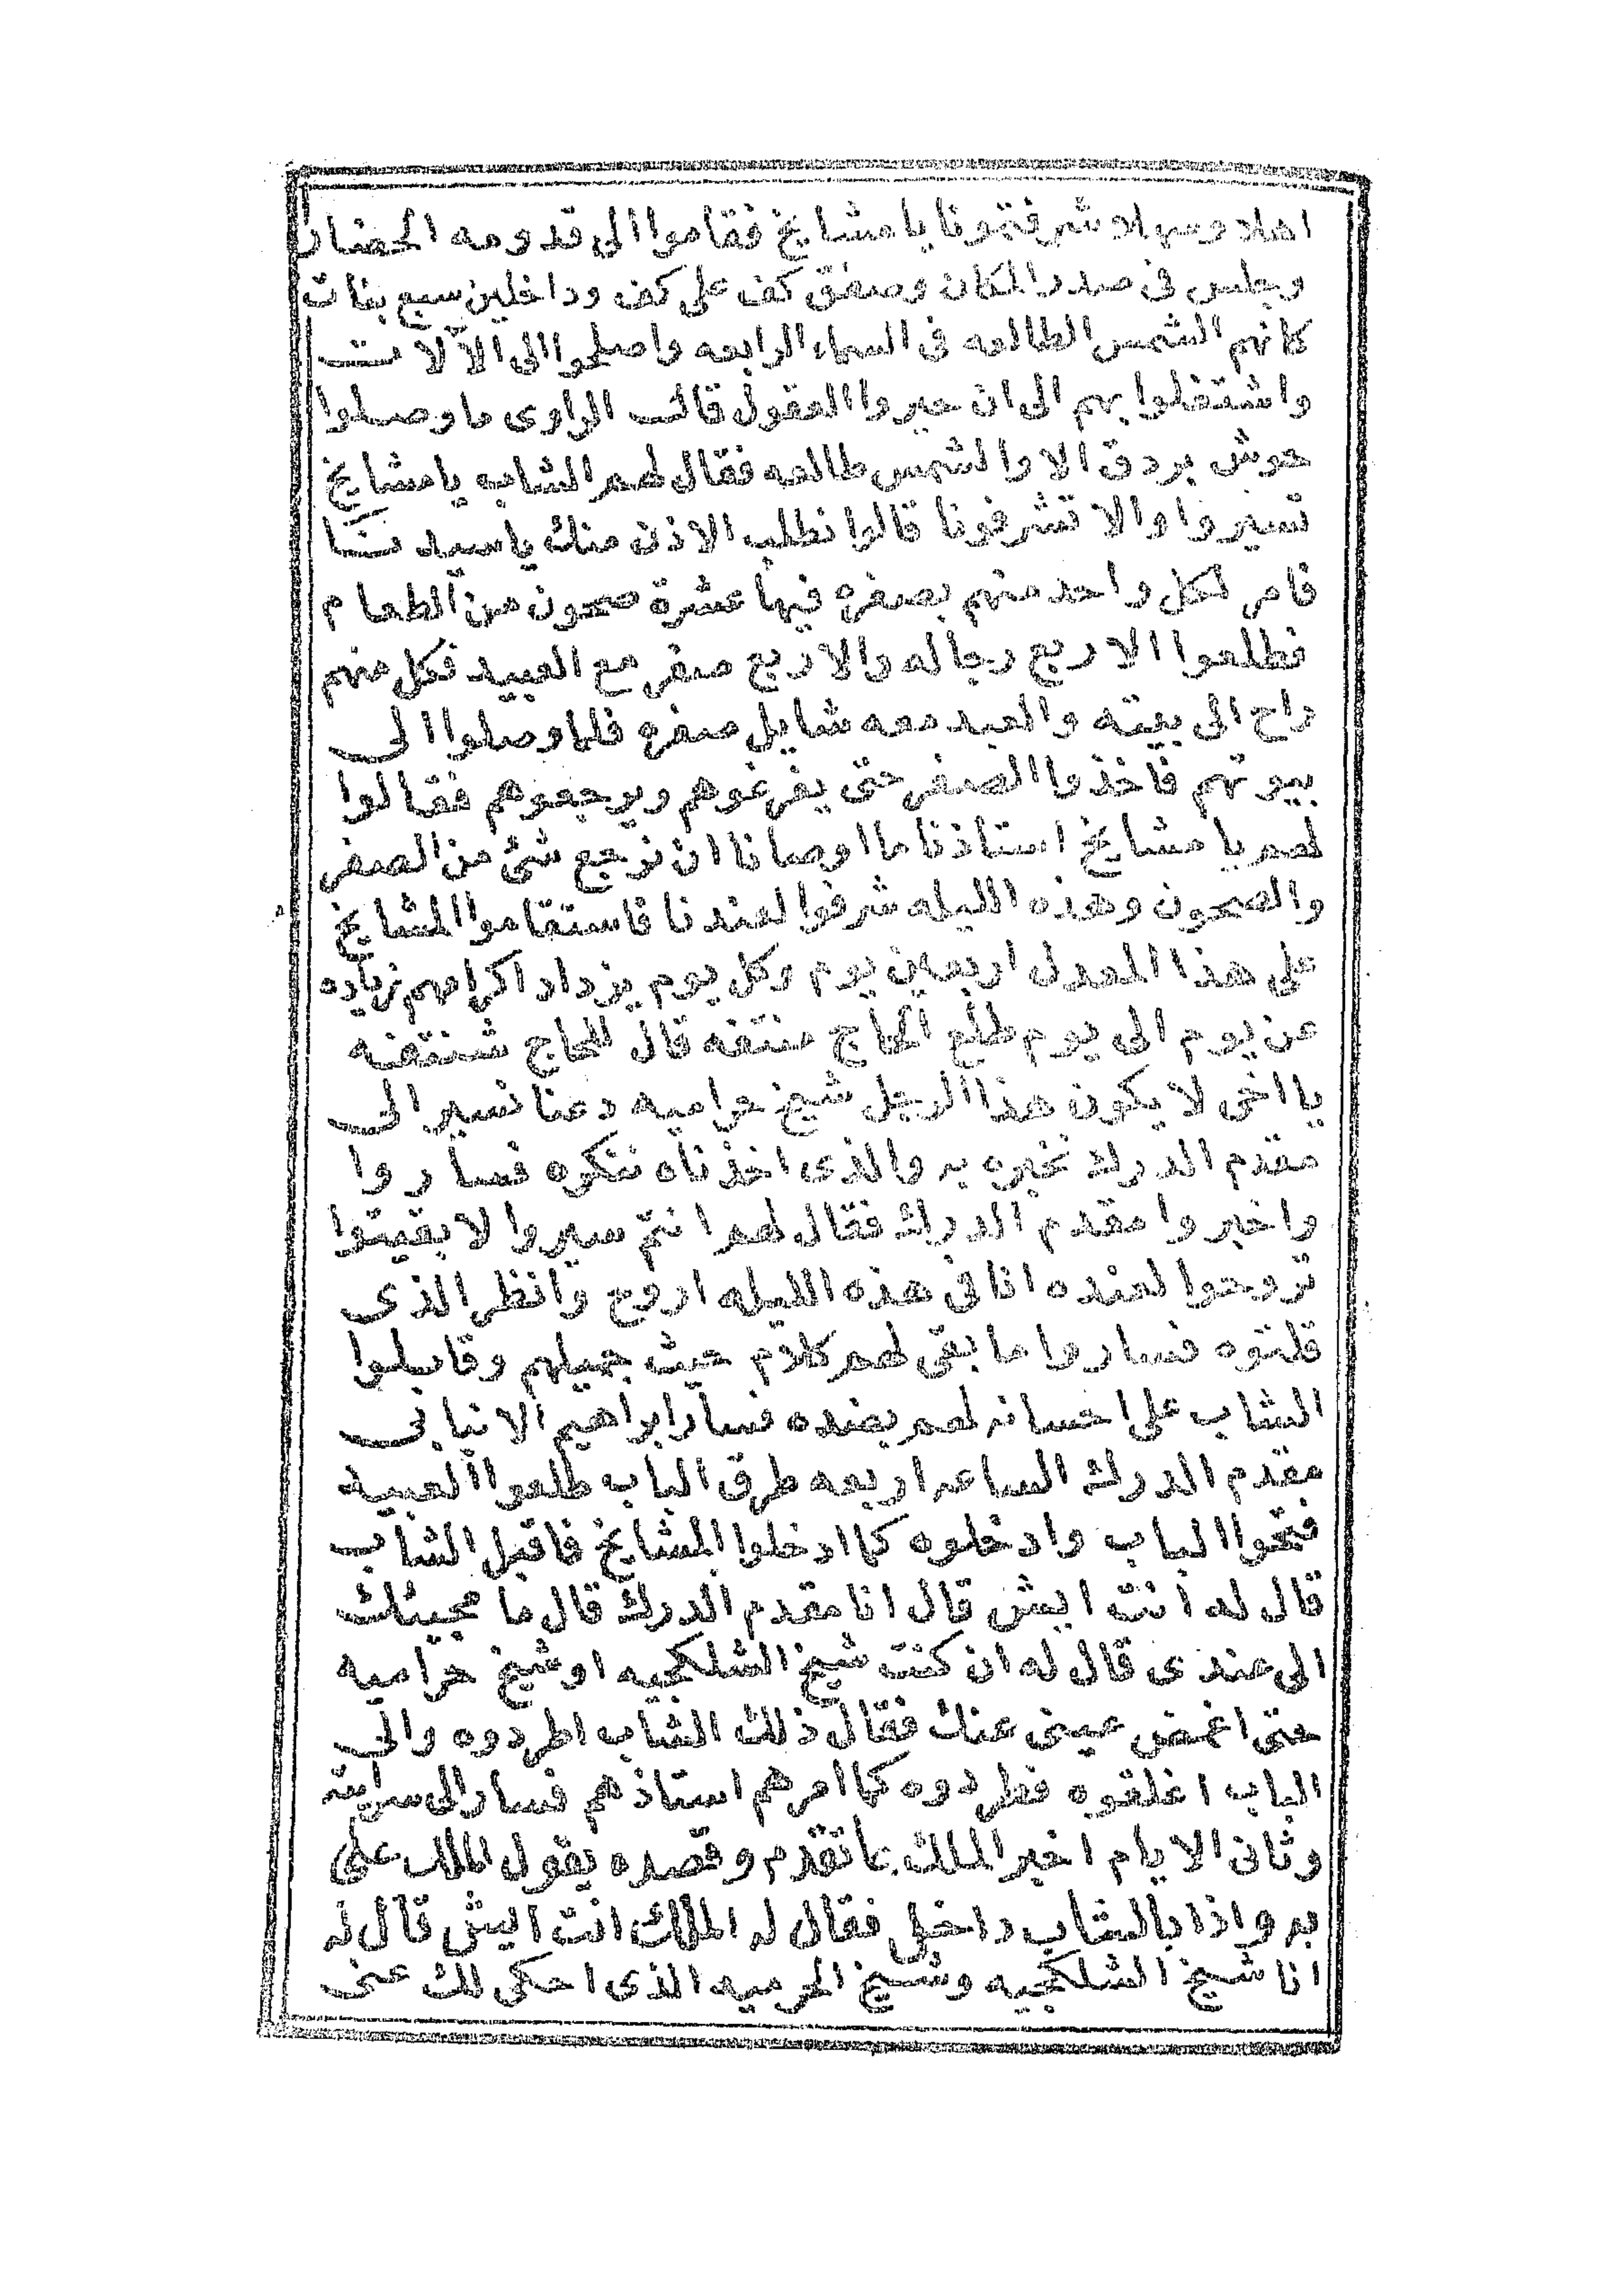 اهلا وسهلا شرفتمونا يا مشايخ فقاموا الى قدومه الحضار
وجلس فى صدر المكان وصفق كف على كف وداخلين سبع بنات
كانهم الشمس الطالعه فى السماء الرابعه واصلحوا الى الآلات
واشتغلوا بهم الى ان حيروا العقول قالت الراوى ما وصلوا
حوش بردق الا والشمس طالعه فقال لهم الشاب يا مشايخ
تسيروا والا تشرفونا قالوا نطلب الاذن منك يا سيدنا
فامر لكل واحد منهم بصفره فيها عشرة صحون من الطعام
فطلعوا الاربع رجاله والاربع صفر مع العبيد فكل منهم
راح الى بيته والعبد معه شايل صفره فلما وصلوا الى
بيوتهم فاخذوا الصفر حتى يفرغوهم ويرجعوهم فقالوا
لهم يا مشايخ استاذنا ما اوصانا ان نرجع شئ من الصفر
والصحون وهذه الليله شرفوا لعندنا فاستقاموا المشايخ
على هذا المعدل اربعين يوم وكل يوم يزداد اكرامهم زياده
عن يوم الى يوم طلع الحاج منتفه قال للحاج شنتفنه
يا اخى لا يكون هذا الرجل شيخ حراميه دعنا نسير الى
مقدم الدرك نخبره به والذى اخذناه ننكره فساروا
واخبروا مقدم الدرك فقال لهم انتم سيروا لا بقيتوا
تروحوا لعنده انا فى هذه الليله اروح وانظر الذى
قلتوه فساروا ما بقى لهم كلام حيث جميلهم وقابلوا
الشاب على احسانه لهم بضده فسار ابراهيم الانبابى
مقدم الدرك الساعه اربعه طرق الباب طلعوا العبيد
فتحوا الباب وادخلوه كما ادخلوا المشايخ فاقبل الشاب
قال له انت ايش قال انا مقدم الدرك قال ما مجيئك
الى عندى قال له ان كنت شيخ الشلكجيه او شيخ حراميه
حتى اغمض عينى عنك فقال ذلك الشاب اطردوه والى
الباب اغلقوه فطردوه كما امرهم استاذهم فسار الى سرايته
وثانى الايام اخبر الملك بما تقدم وقصده يقول الملك على
به واذا بالشاب داخل فقال له الملك انت ايش قال له
انا شيخ الشلكجيه وشيخ الحرميه الذى احكى لك عنى